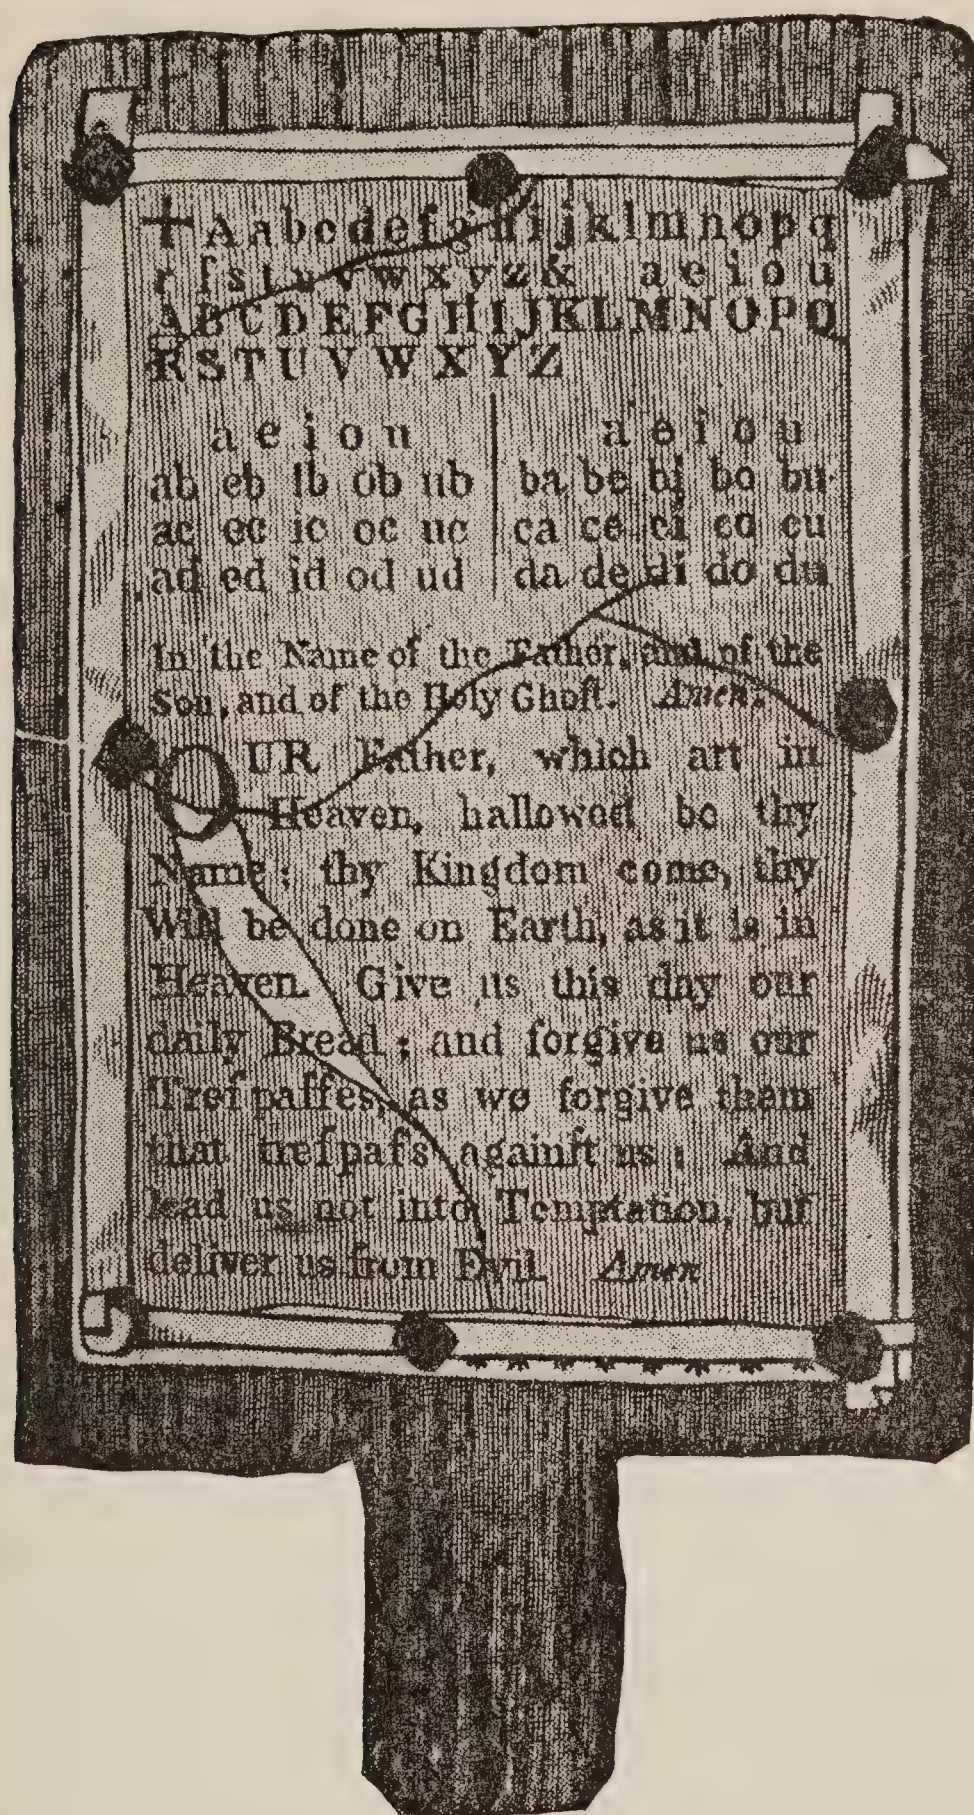 + A a b c d e f g h i j k l m n o p q
r ſ s t u v w x y z & a e i o u
A B C D E F G H I J K L M N O P Q
R S T U V W X Y Z
a e i o u | a e i o u
ab eb ib ob ub | ba be bi bo bu
ac ec ic oc uc | ca ce ci co cu
ad ed id od ud | da de di do du
In the Name of the Father, and of the
Son, and of the Holy Ghoſt. Amen.
OUR Father, which art in
Heaven, hallowed be thy
Name; thy Kingdom come, thy
Will be done on Earth, as it is in
Heaven. Give us this day our
daily Bread; and forgive us our
Treſpaſſes, as we forgive them
that treſpaſs againſt us: And
lead us not into Temptation, but
deliver us from Evil. Amen